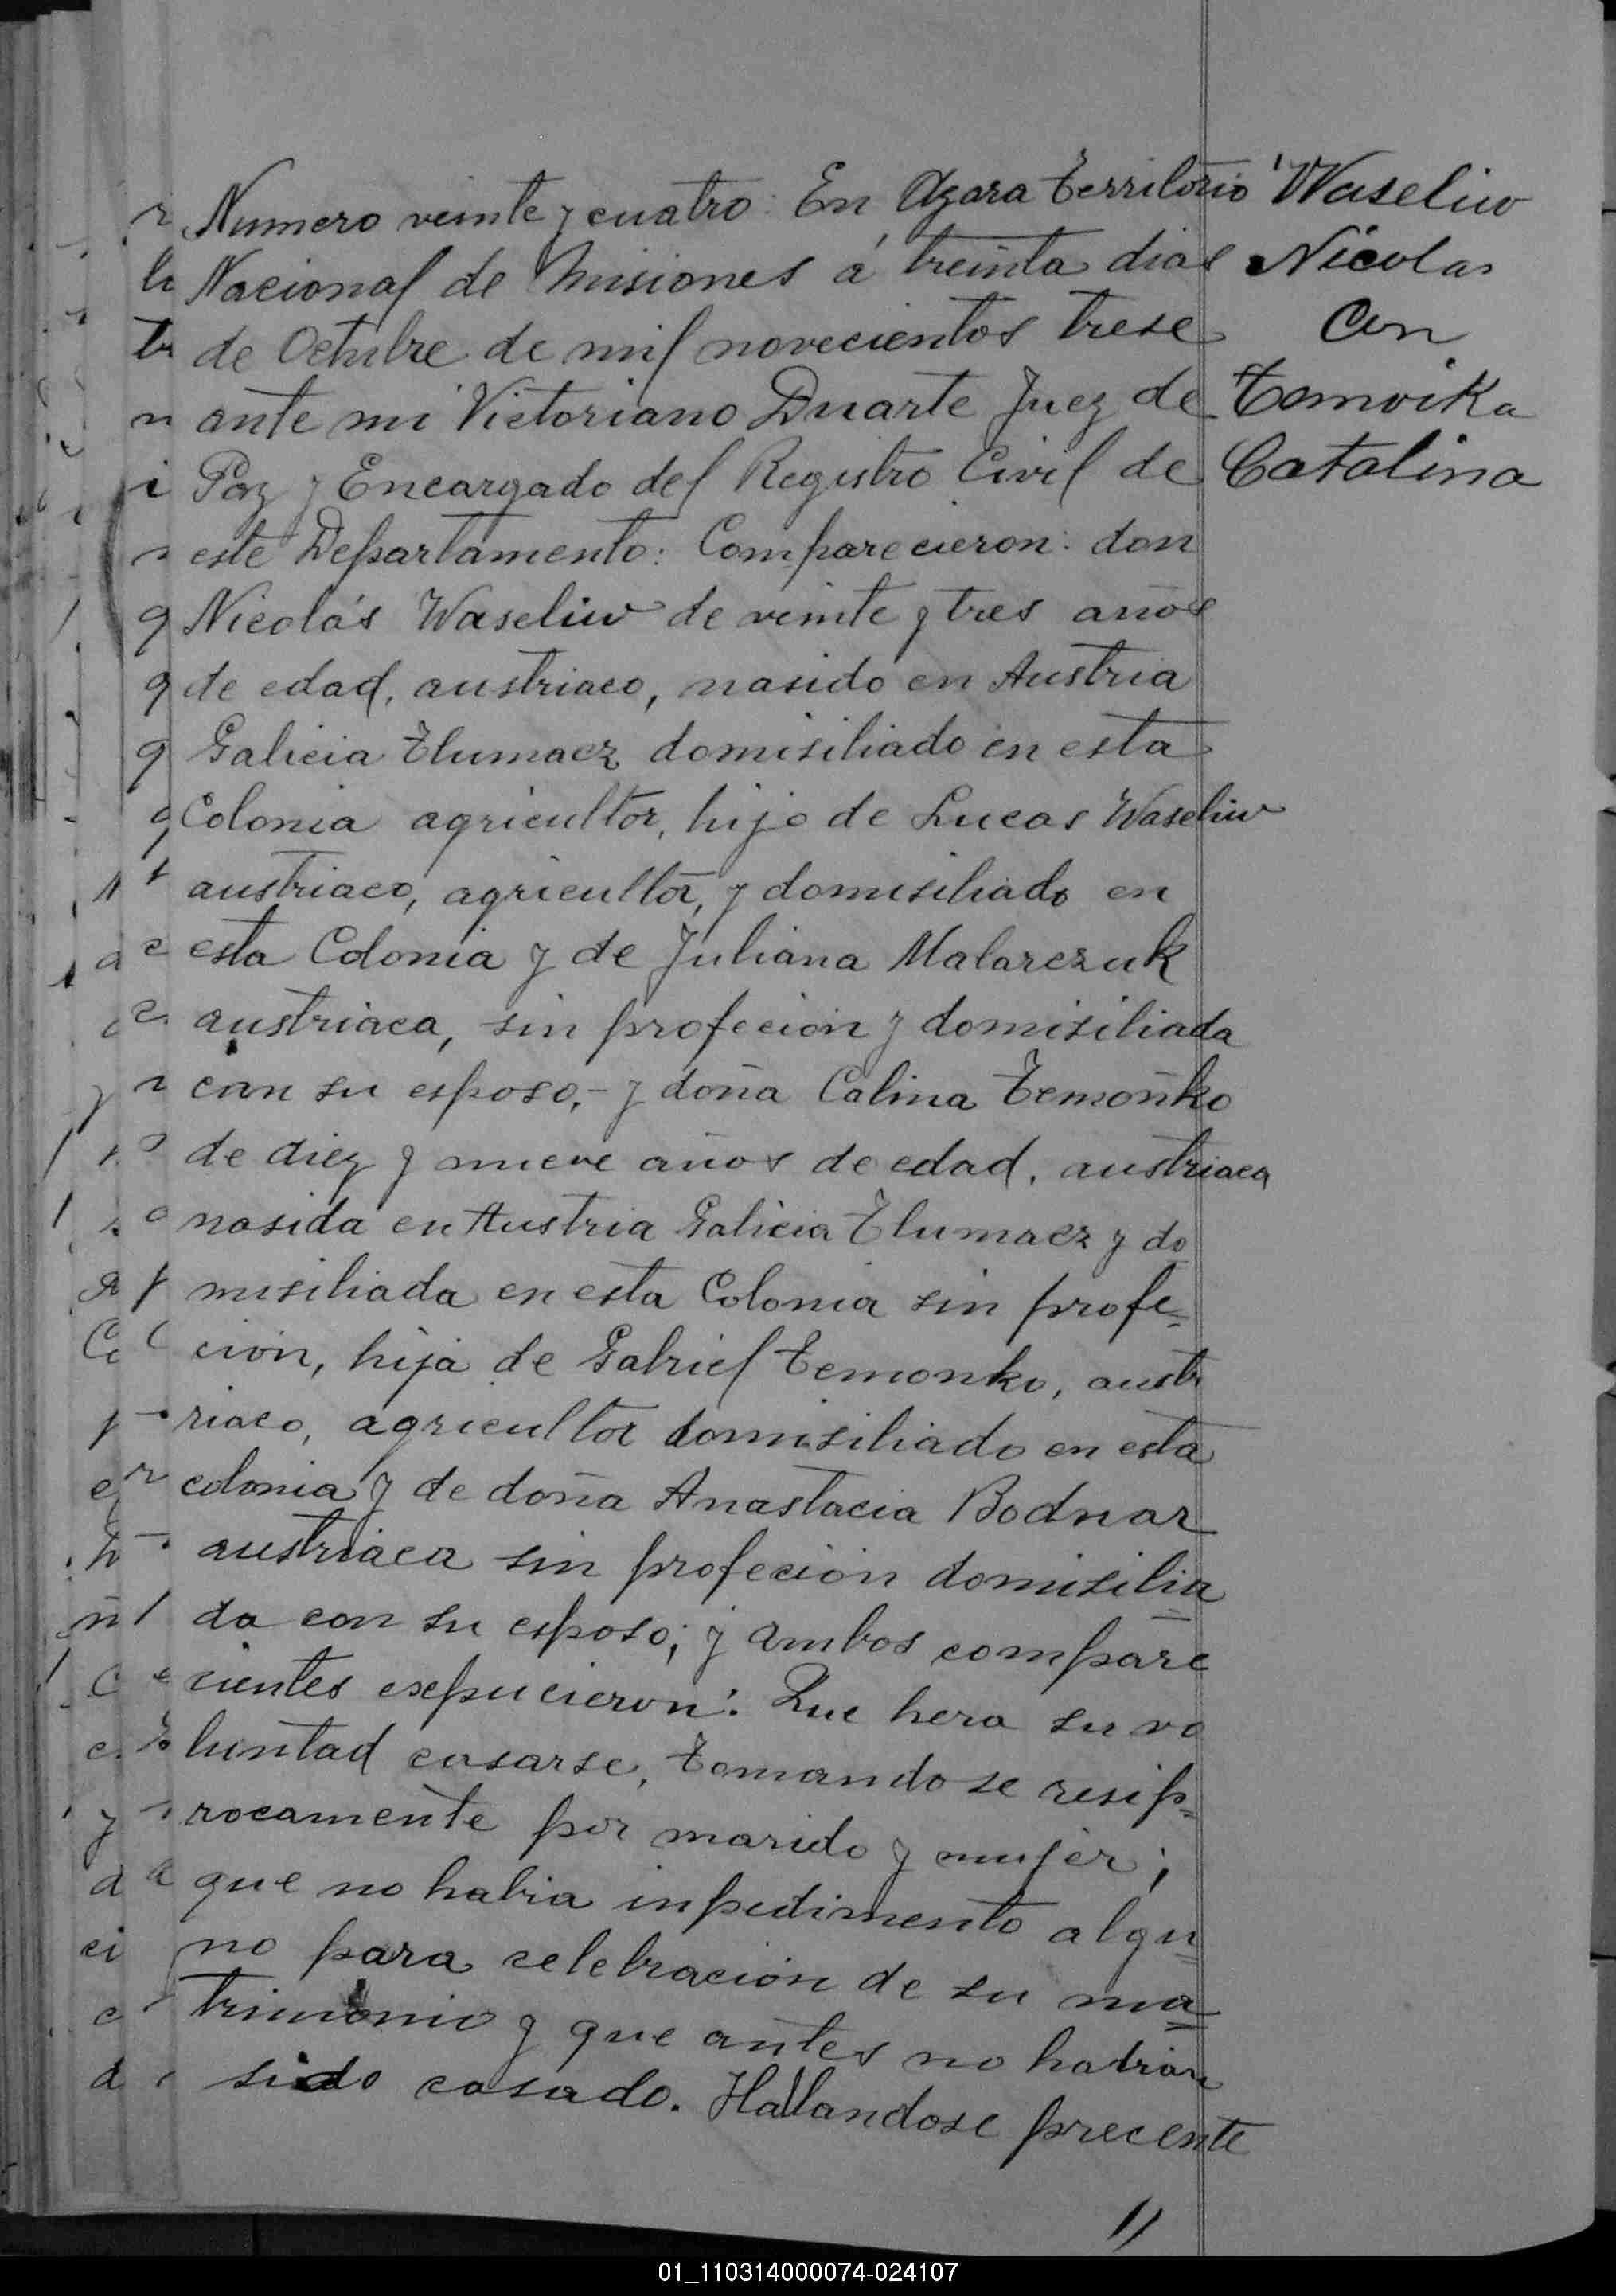 Numero veinte y cuatro: En Azara Territorio
Nacional de Misiones á treinta dias
de Octubre de mil novecientos trese
ante mi Victoriano Duarte Juez de
Paz y Encargado del Registro Civil de
este Departamento: Comparecieron: don
Nicolás Waseliw de veinte y tres años
de edad, austriaco, nasido en Austria
Galicia Tlumacz domisiliado en esta
Colonia agricultor, hijo de Lucas Waseliw
austriaco, agricultor, y domisiliado en
esta Colonia y de Juliana Malarczuk
austriaca, sin profecion y domisiliada
con su esposo,- y doña Calina Temoñko
de diez y nueve años de edad, austriaca
nasida en Austria Galicia Tlumacz y do
misiliada en esta Colonia sin profe=
cion, hija de Gabriel Temonko, aust
riaco, agricultor domisiliado en esta
colonia y de doña Anastacia Bodnar
austriaca sin profecion domisilia
da con su esposo; y ambos compare
cientes expucieron: Que hera su vo
luntad casarse, tomandose resip=
rocamente por marido y mujer;
que no habia inpedimento algu
no para celebracion de su ma=
trimonio y que antes no habian
sido casado. Hallandose precente
Waseliw
Nicolas
Con
Catalina
01_110314000074-024107